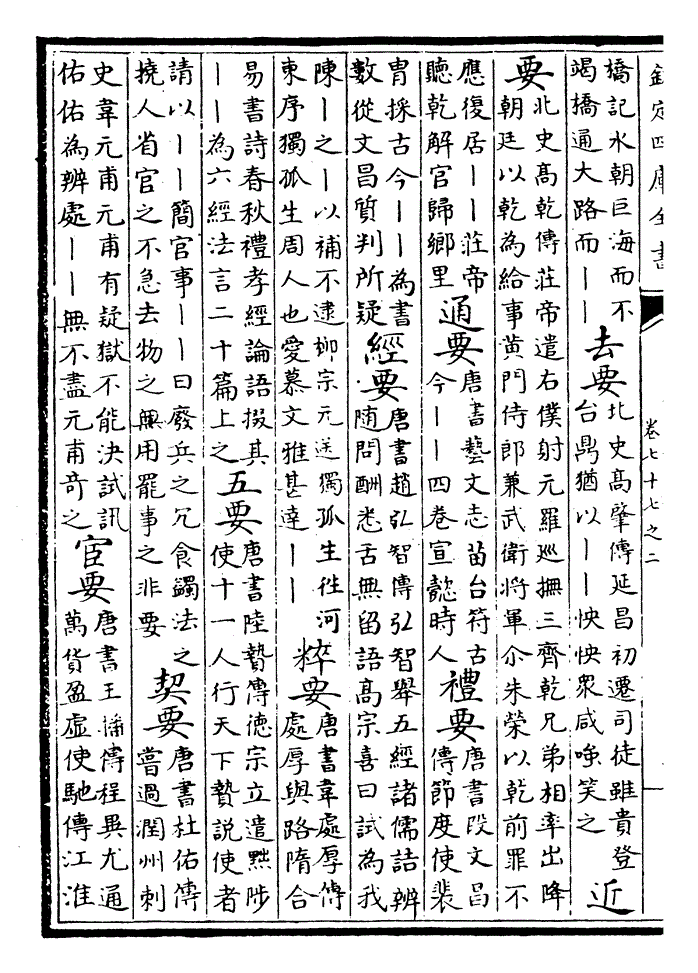 欽定四庫全書
卷七十七之二
一
橋記水朝巨海而不
竭橋通大路而丨丨
去要
北史髙肇傳延昌初遷司徒雖貴登
台鼎猶以丨丨怏怏衆咸嗤笑之
近
要
北史髙乾傳莊帝遣右僕射元羅巡撫三齊乾兄弟相率出降
朝廷以乾為給事黃門侍郎兼武衛將軍尒朱榮以乾前罪不
應復居丨丨莊帝
聽乾解官歸鄉里
通要
唐書藝文志苗台符古
今丨丨四卷宣懿時人
禮要
唐書段文昌
傳節度使裴
胄採古今丨丨為書
數從文昌質判所疑
經要
唐書趙弘智傳弘智舉五經諸儒詰辨
隨問酬悉舌無留語髙宗喜曰試為我
陳丨之丨以補不逮柳宗元送獨孤生往河
東序獨孤生周人也愛慕文雅甚達丨丨
粹要
唐書韋處厚傳
處厚與路隋合
易書詩春秋禮孝經論語掇其
丨丨為六經法言二十篇上之
五要
唐書陸贄傳德宗立遣黜陟
使十一人行天下贄説使者
請以丨丨簡官事丨丨曰廢兵之冗食蠲法之
撓人省官之不急去物之無用罷事之非要
契要
唐書杜佑傳
嘗過潤州刺
史韋元甫元甫有疑獄不能決試訊
佑佑為辨處丨丨無不盡元甫奇之
宦要
唐書王播傳程异尤通
萬貨盈虛使馳傳江淮